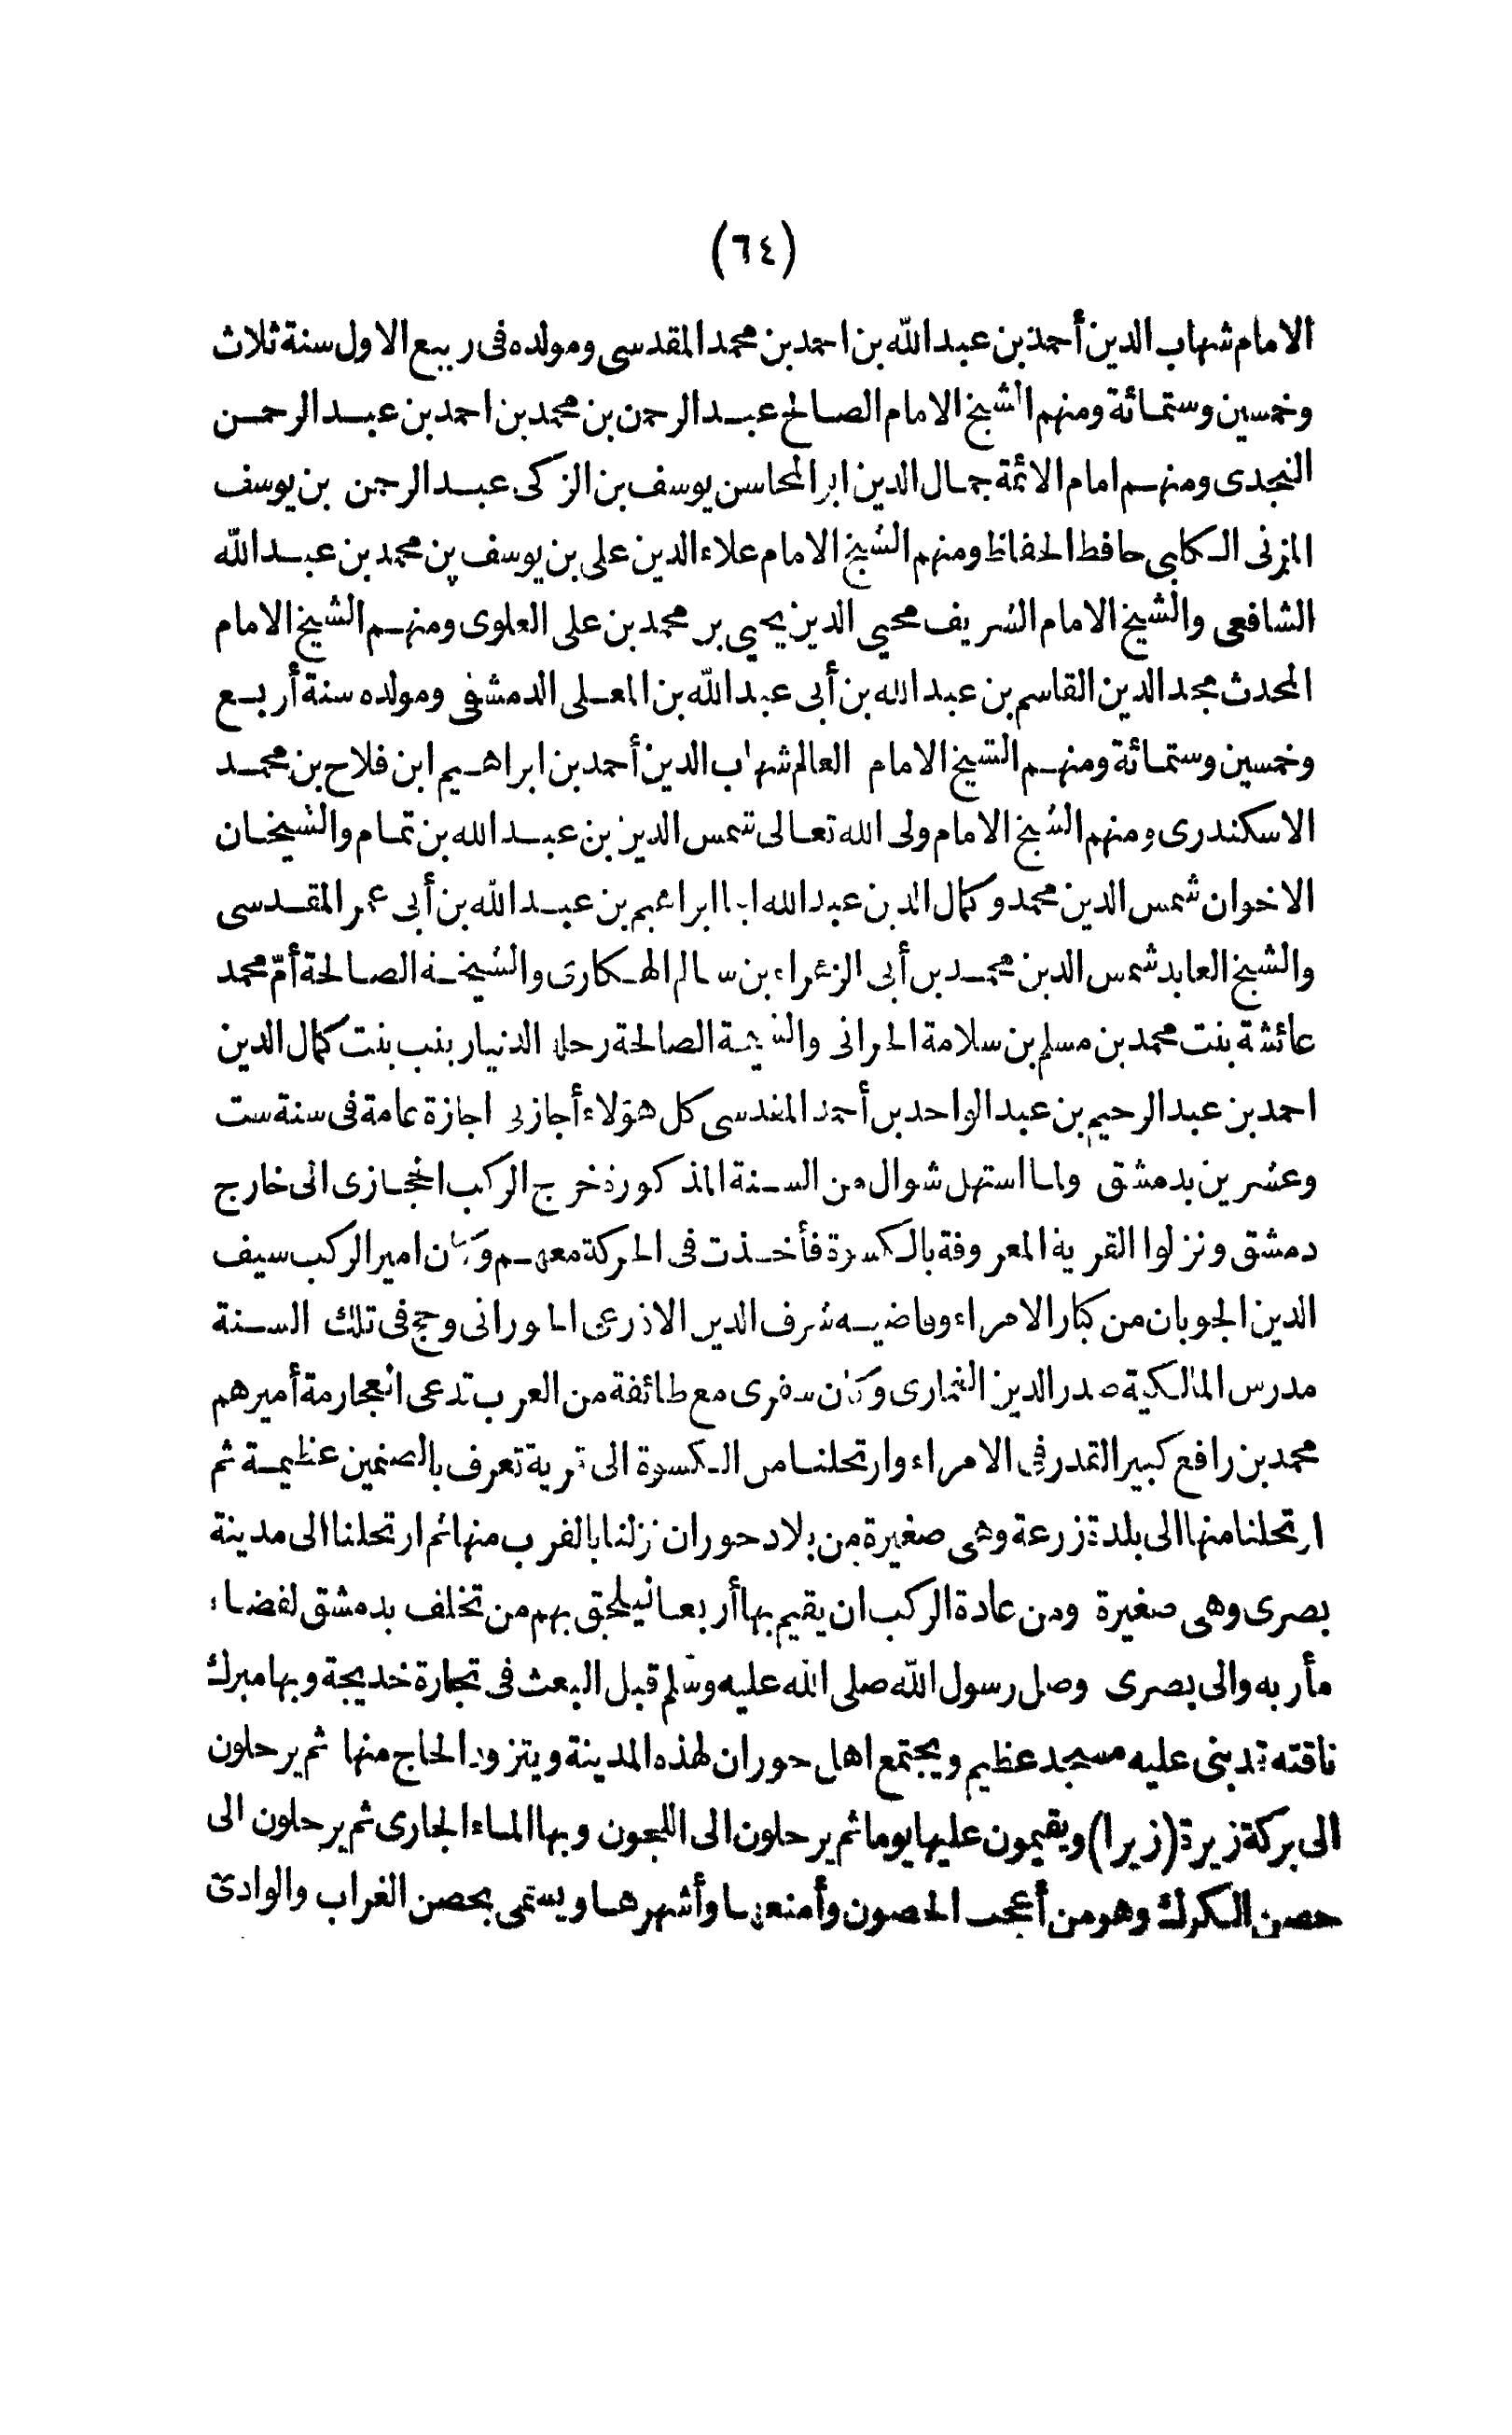 (٦٤)
الامام شهاب الدين أحمد بن عبد الله بن احمد بن محمد المقدسى ومولده فى ربيع الاول سنة ثلاث
وخمسين وستمائة ومنهم الشيخ الامام الصالح عبد الرحمن بن محمد بن احمد بن عبد الرحمن
النجدى ومنهم امام الائمة جمال الدين ابو المحاسن يوسف بن الزكى عبد الرحمن بن يوسف
المزنى الكلبى حافظ الحفاظ ومنهم الشيخ الامام علاء الدين على بن يوسف بن محمد بن عبد الله
الشافعى والشيخ الامام الشريف محيى الدين يحيى بن محمد بن على العلوى ومنهم الشيخ الامام
المحدث مجد الدين القاسم بن عبد الله بن أبى عبد الله بن المعلى الدمشقى ومولده سنة أربع
وخمسين وستمائة ومنهم الشيخ الامام العالم شهاب الدين أحمد بن ابراهيم ابن فلاح بن محمد
الاسكندرى ومنهم الشيخ الامام ولى الله تعالى شمس الدين بن عبد الله بن تمام والشيخان
الاخوان شمس الدين محمد وكمال الدين عبد الله ابنا ابراهيم بن عبد الله بن أبى عمر المقدسى
والشيخ العابد شمس الدين محمد بن أبى الزهراء بن سالم الهكارى والشيخة الصالحة أمّ محمد
عائشة بنت محمد بن مسلم بن سلامة الحرانى والشيخة الصالحة رحلة الدنيا زينب بنت كمال الدين
احمد بن عبد الرحيم بن عبد الواحد بن أحمد المقدسى كل هؤلاء أجازنى اجازة عامة فى سنة ست
وعشرين بدمشق ولما استهل شوال من السنة المذكورة خرج الركب الحجازى الى خارج
دمشق ونزلوا القرية المعروفة بالكسوة فأخذت فى الحركة معهم وكان امير الركب سيف
الدين الجوبان من كبار الامراء وقاضيه شرف الدين الاذرعى الحورانى وحج فى تلك السنة
مدرس المالكية صدر الدين الغمارى وكان سفرى مع طائفة من العرب تدعى العجارمة أميرهم
محمد بن رافع كبير القدر فى الامراء وارتحلنا من الكسوة الى قرية تعرف بالصنمين عظيمة ثم
ارتحلنا منها الى بلدة زرعة وهى صغيرة من بلاد حوران نزلنا بالقرب منها ثم ارتحلنا الى مدينة
بصرى وهى صغيرة ومن عادة الركب ان يقيم بها أربعا ليلحق بهم من تخلف بدمشق لقضاء
مأربه والى بصرى وصل رسول الله صلى الله عليه وسلم قبل البعث فى تجارة خديجة وبها مبرك
ناقته قد بنى عليه مسجد عظيم ويجتمع اهل حوران لهذه المدينة ويتزود الحاج منها ثم يرحلون
الى بركة زيرة (زيرا) ويقيمون عليها يوما ثم يرحلون الى اللجون وبها الماء الجارى ثم يرحلون الى
حصن الكرك وهو من أعجب الحصون وأمنعها وأشهرها ويسمى بحصن الغراب والوادى